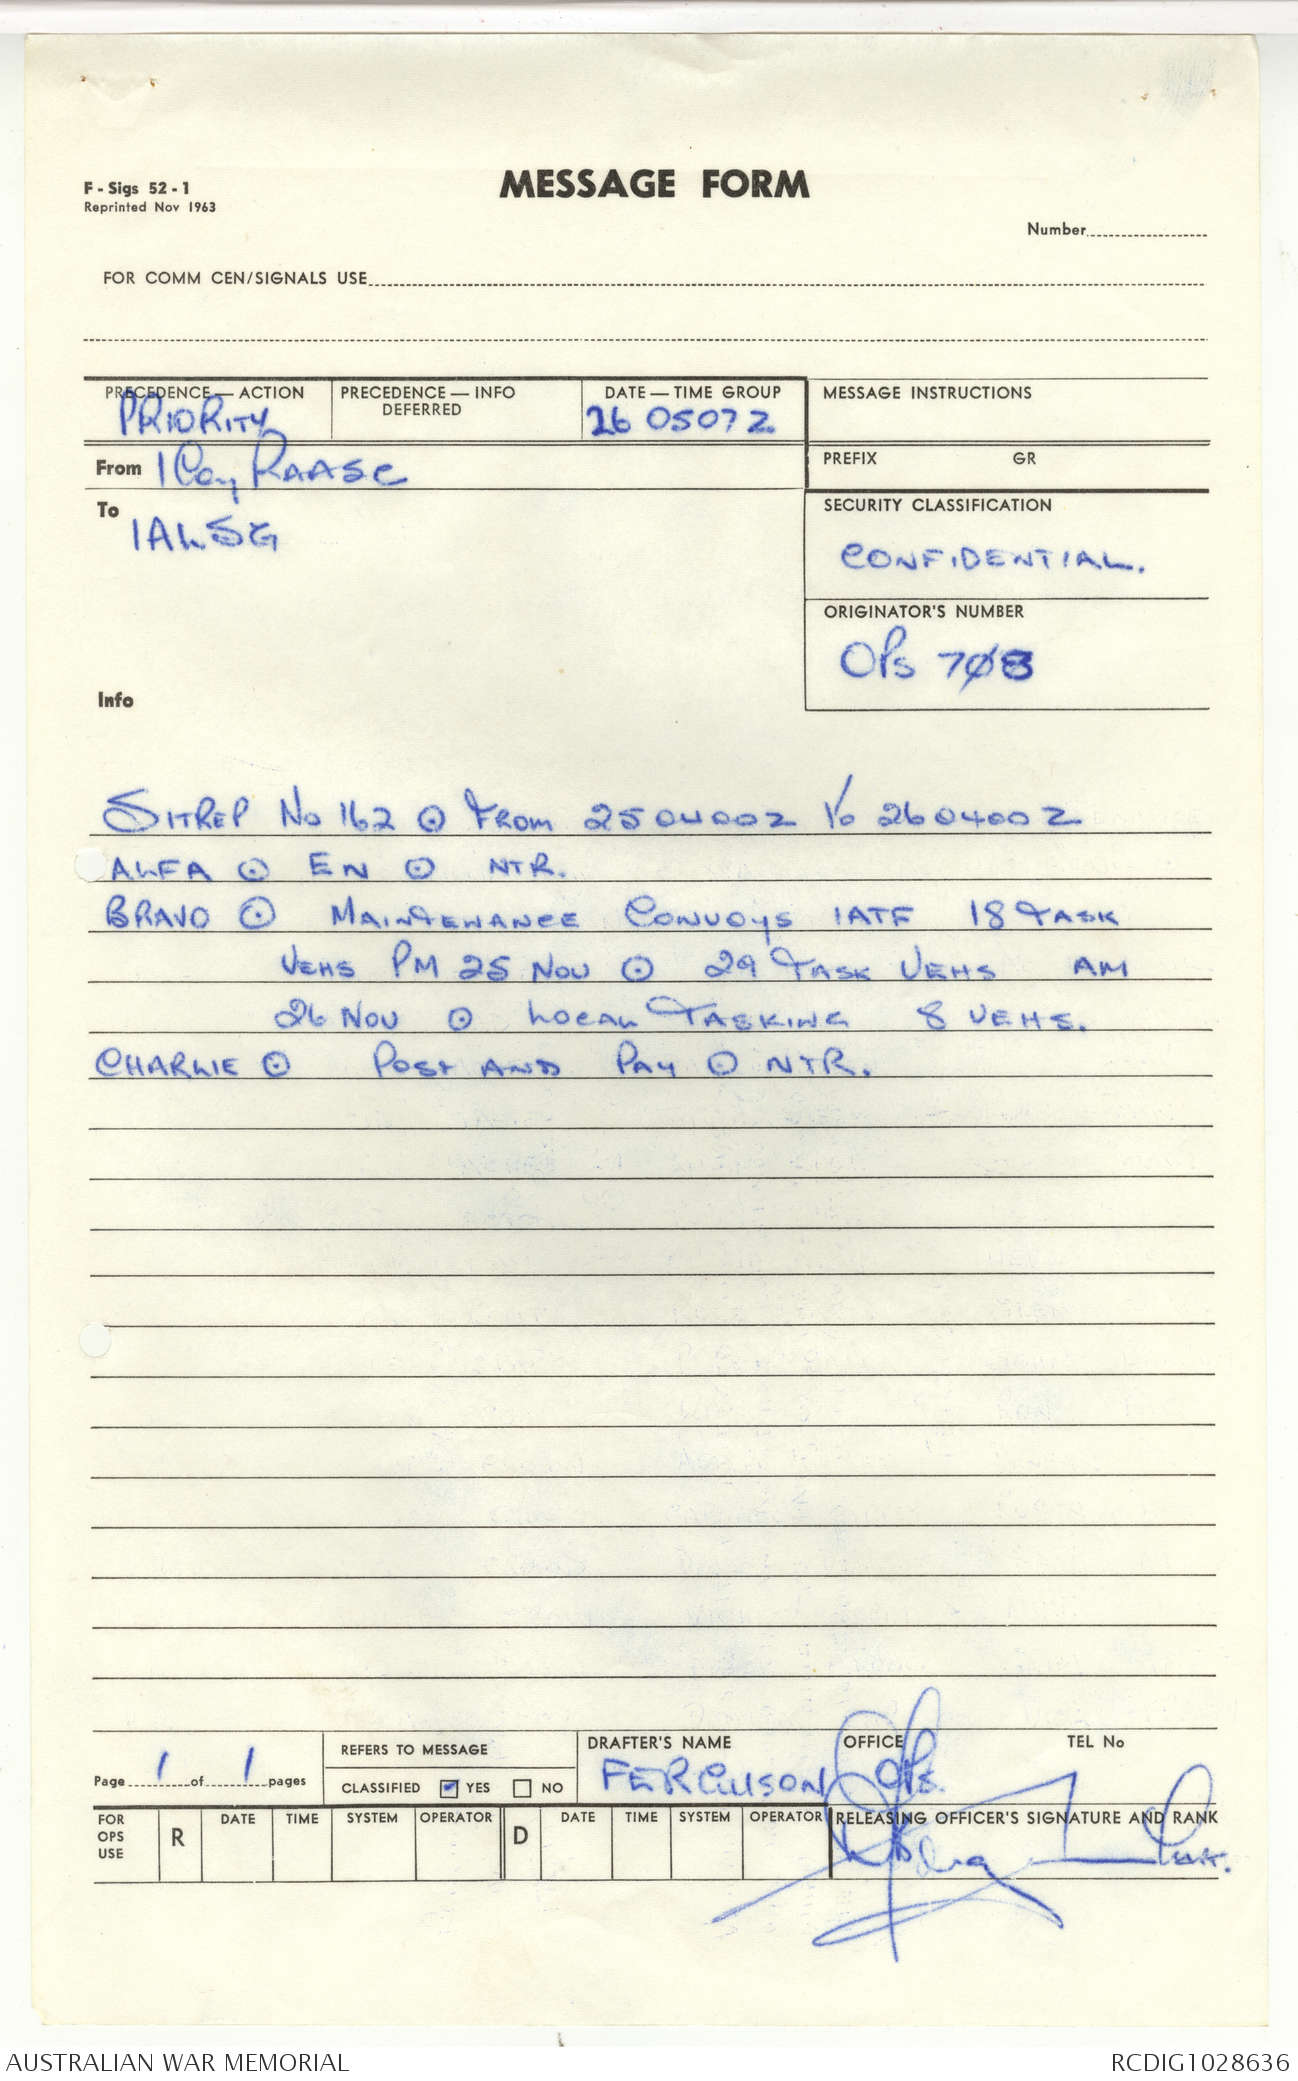 F - Sigs 52 - 1
Reprinted Nov 1963
MESSAGE FORM
Number
FOR COMM CEN/SIGNALS USE
PRECEDENCE — ACTION
PRIORITY
PRECEDENCE — INFO
DEFERRED
DATE — TIME GROUP
260507Z
MESSAGE INSTRUCTIONS
From 1 Coy RAASC
PREFIX GR
To
1 ALSG
SECURITY CLASSIFICATION
CONFIDENTIAL.
ORIGINATOR'S NUMBER
OPS 708
Info
SITREP No 162 ⊙ FROM 250400Z To 260400Z
ALFA ⊙ EN ⊙ NTR.
BRAVO ⊙ MAINTENANCE CONVOYS 1ATF 18 TASK
VEHS PM 25 NOV ⊙ 29 TASK VEHS AM
26 NOV ⊙ LOCAL TASKING 8 VEHS.
CHARLIE ⊙ POST AND PAY ⊙ NTR.
Page 1 of 1 pages
REFERS TO MESSAGE
CLASSIFIED YES NO
DRAFTER'S NAME
FERGUSON
OFFICE
OPS.
TEL No
FOR OPS USE
R DATE TIME SYSTEM OPERATOR D DATE TIME SYSTEM OPERATOR
RELEASING OFFICER'S SIGNATURE AND RANK
AUSTRALIAN WAR MEMORIAL
RCDIG1028636